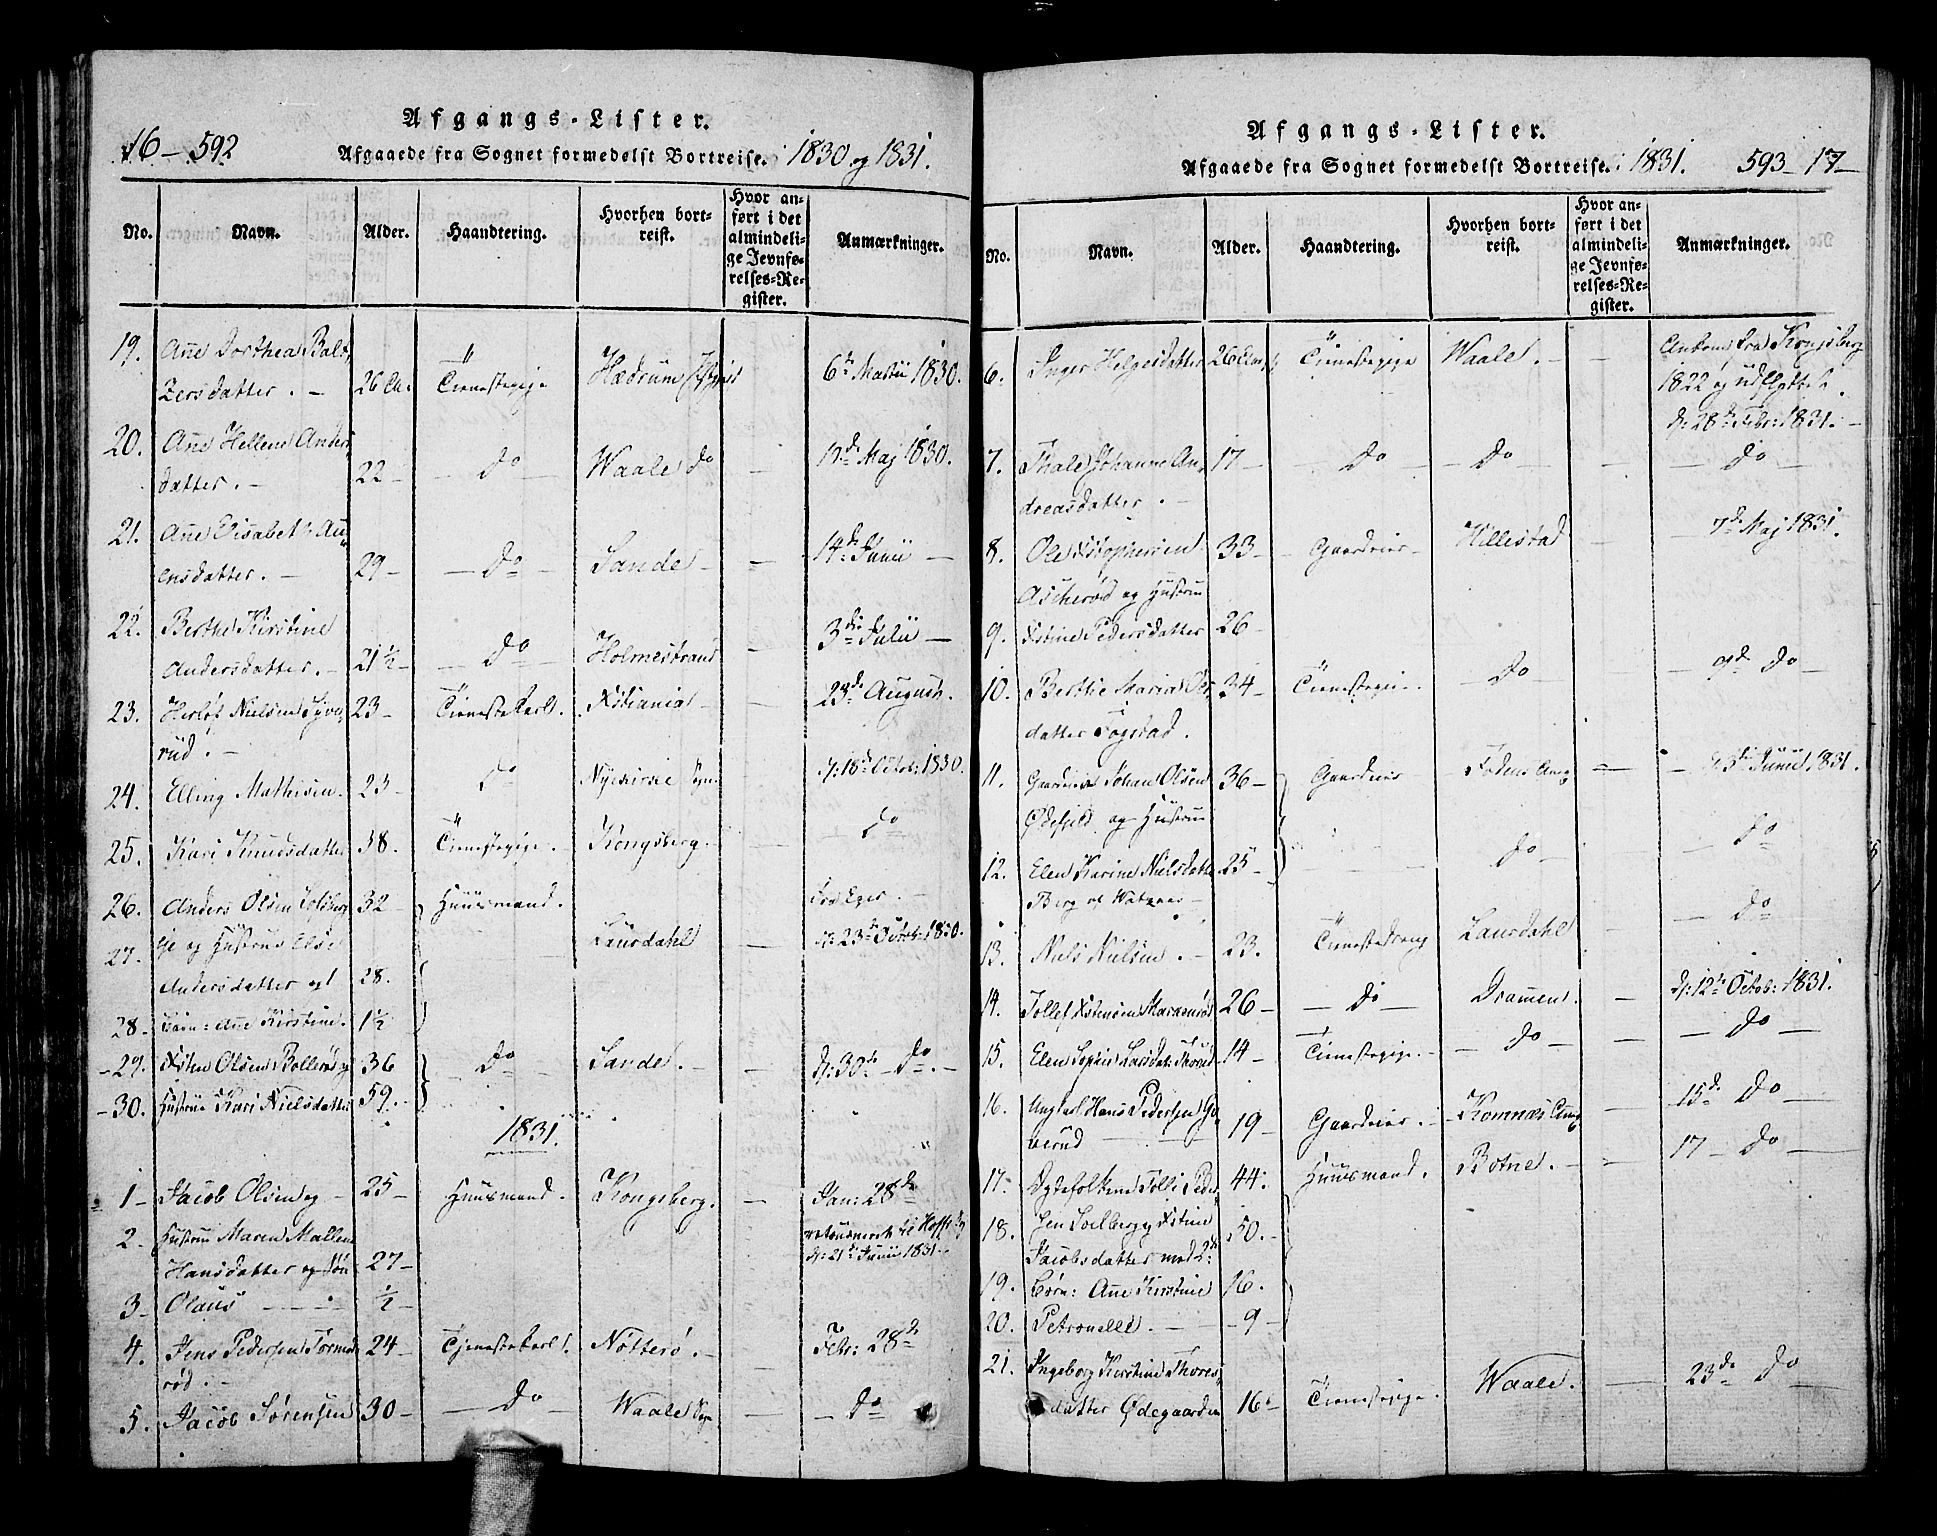 Afgangs-Lister.
16-592
Afgaaede fra Sognet formedelst Bortreise. 1830 og 1831.
No. Navn. Alder. Haandtering. Hvorhen bort-
reist. Hvor an-
ført i det
almindeli-
ge Jevnfø-
relses-Re-
gister. Anmærkninger.
19. Ane Dorthea Balt,
zersdatter. - 26 Tienestepige Hædrum 6te Martii 1830.
20. Ane Hellene Anders
datter. - 22 - Do - Waale Do - 12d Maj 1830.
21. Ane Elisabeth Au
ensdatter. - 29 - Do - Sande - - 14de Junii -
22. Berthe Kirstine
Andersdatter. - 21½ - Do - Holmestrand - 3die Julii -
23. Herlof Nielsen Syve
rud. - 23 - Tienestekarl. Xstiania - - 23de August.
24. Elling Mathisen. 23 - Do Nyekirke Sogn d: 18de Octob: 1830.
25. Kari Knudsdatter 38. Tienestepige. Kongsberg. - Do
26. Anders Olsen 32 - Huusmand. Fra Eger. -
27. ge og Hustrue Else Laurdahl - d: 23de Octob: 1830.
Andersdatter og 1 28.
28. Barn: Ane Kirstine. 1½
29. Xsten Olsen Bollerød og 36 Do Sande. - - d: 30te - Do. -
30. Hustrue Kari Nielsdatter 59.
1831.
1 - Jacob Olsen og - 25 - Huusmand. Kongsberg. - Jan: 28de
2. Hustrue Maren Mallene
Hansdatter og Søn 27 - d: 21de Junii 1831.
3 - Olaus - - - ½ -
4. Jens Pedersen Tormes
rød. - 24 - Tjenestekarl. Nøtterø. - - Febr: 28de
5. Jacob Sørensen 30 - - Do Waale Sogn - - Do -
Afgangs-Lister.
Afgaaede fra Sognet formedelst Bortreise. 1831. 593-17-
No. Navn. Alder. Haandtering. Hvorhen bort-
reist. Hvor an-
ført i det
almindeli-
ge Jevnfø-
relses-Re-
gister. Anmærkninger.
6. Inger Helgesdatter 26 Tienestepige Waale. - - Ankom fra Kongsberg
1822 og udflyttet
d: 28de Febr: 1831. -
7. Thale Johanne An,
dreasdatter. - 17 - Do - - Do - - Do -
8. Ole Xstophersen 33 - Gaardeier - Hillestad - 7de Maj 1831.
Ascherød og Hustrue
9. Xstine Pedersdatter 26 -
10. Berthe Maria Ols 34 - Tienestepige. - Do - - 9de Do -
datter Fogstad.
11. Gaardeier Johan Olsen 36 - Gaardeier - Fodens Anng - Junii 1831.
Ødefjeld og Hustrue
12. Elen Karine Nielsdatter 25 - Do - - Do -
Berg af Wataas -
13. Niels Nielsen. - 23. Tienestedreng Laurdahl - Do -
14. Tollef Xstensen 26 - - Do - Dramen. - d: 12te Octob: 1831.
15. Elen Sophie Larsdat: 14 - Tienestepige. - - Do - - - Do -
16. Ungkarl Hans Pedersen Go
verud 19 - Gaardeier. - Komnæs Anng - 15de Do -
17 - Ægtefolkene Tolli Peder, 44. Huusmand. Botne. - - 17 - Do -
18. sen Solberg og Xstine 50. -
Jacobsdatter med 2de
19. Børn: Ane Kirstine 16.
20. Petronelle. - - 9 -
21. Ingeborg Kirstine Thores,
datter Ødegaarden 16 Tienestepige. Waale. - 23de Do -